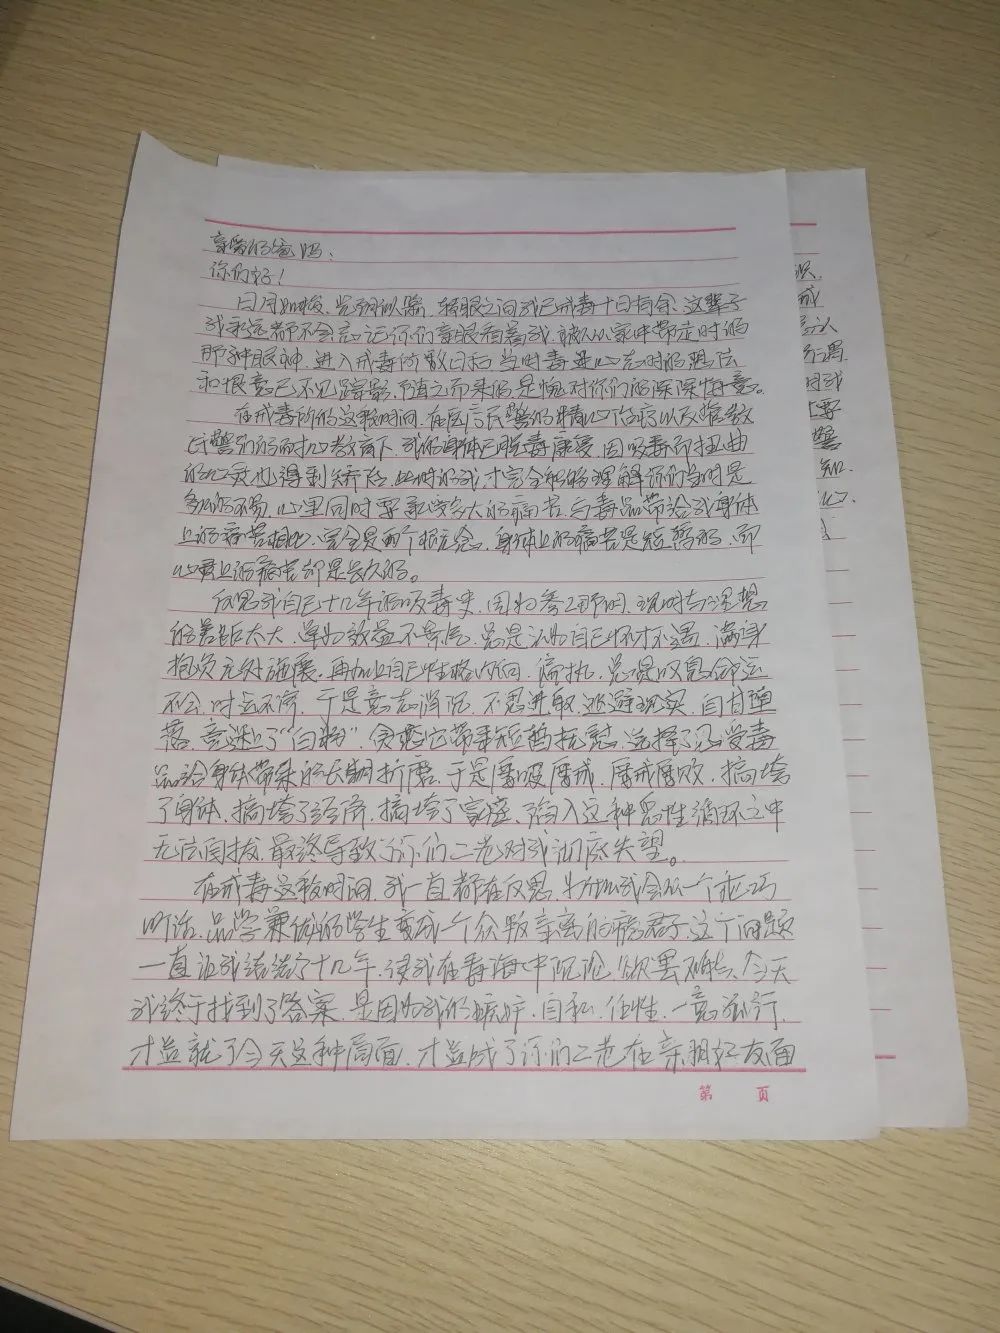 亲爱的爸妈:
你们好!
日月如梭,光阴似箭,转眼之间我已戒毒十日有余,这辈子
我永远都不会忘记你们亲眼看着我,被人从家中带走时的
那种眼神,进入戒毒所数日后,当时毒迷心志时的想法
和恨意已不见踪影,随之而来的是愧对你们的深深悔意。
在戒毒所的这段时间,在医疗民警的精心治疗以及管教
民警们的耐心教育下,我的身体已脱毒康复,因吸毒而扭曲
的心灵也得到矫治,此时的我才完全能够理解你们当时是
多么的不易,心里同时要承受多大的痛苦,与毒品带给我身体
上的痛苦相比,完全是两个概念,身体上的痛苦是短暂的,而
心灵上的痛苦却是长久的。
反思我自己十几年的吸毒史,因为参工期间,现时与理想
的差距太大,单为效益不景气,总是认为自己怀才不遇,满身
抱负无处施展,再加上自己性格内向,偏执,总是叹息命运
不公,时运不济,于是意志消沉,不思进取,逃避现实,自甘堕
落,竟迷上了“白粉”,贪恋它带来短暂抚慰,选择了忍受毒
品给身体带来的长期折磨,于是屡吸屡戒,屡戒屡败,搞垮
了身体,搞垮了经济,搞垮了家庭,陷入这种恶性循环之中
无法自拔,最终导致了你们二老对我彻底失望。
在戒毒这段时间,我一直都在反思,为何我会从一个乖巧
听话,品学兼优的学生变成一个众叛亲离的瘾君子,这个问题
一直让我迷茫了十几年,使我在毒海中沉沦,欲罢不能,今天
我终于找到了答案,是因为我的嫉妒,自私,任性,一意孤行,
才造就了今天这种局面,才造成了你们二老在亲朋好友面
第 页